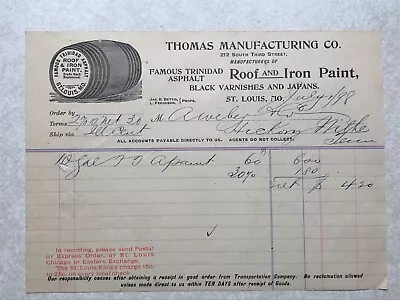 THOMAS MANUFACTURING CO.
212 SOUTH THIRD STREET,
MANUFACTURERS OF
FAMOUS TRINIDAD
ASPHALT
Roof AND Iron Paint,
BLACK VARNISHES AND JAPANS.
FAMOUS TRINIDAD ASPHALT
ROOF
& IRON
PAINT.
ST. LOUIS, MO.
Props.
ST. LOUIS, MO. July 1/98
Order by
Terms Net 30 M
Ship via
Hickory
ALL ACCOUNTS PAYABLE DIRECTLY TO US. AGENTS DO NOT COLLECT.
10 Gal paint 60 600
30% 180
Net $ 420
In remitting, please send Postal
or Express Order, or St. Louis
Chicago or Eastern Exchange.
The St. Louis Banks charge 15c.
to 25c. on every small check.
Our responsibility ceases after obtaining a receipt in good order from Transportation Company. No reclamation allowed
unless made direct to us within TEN DAYS after receipt of Goods.